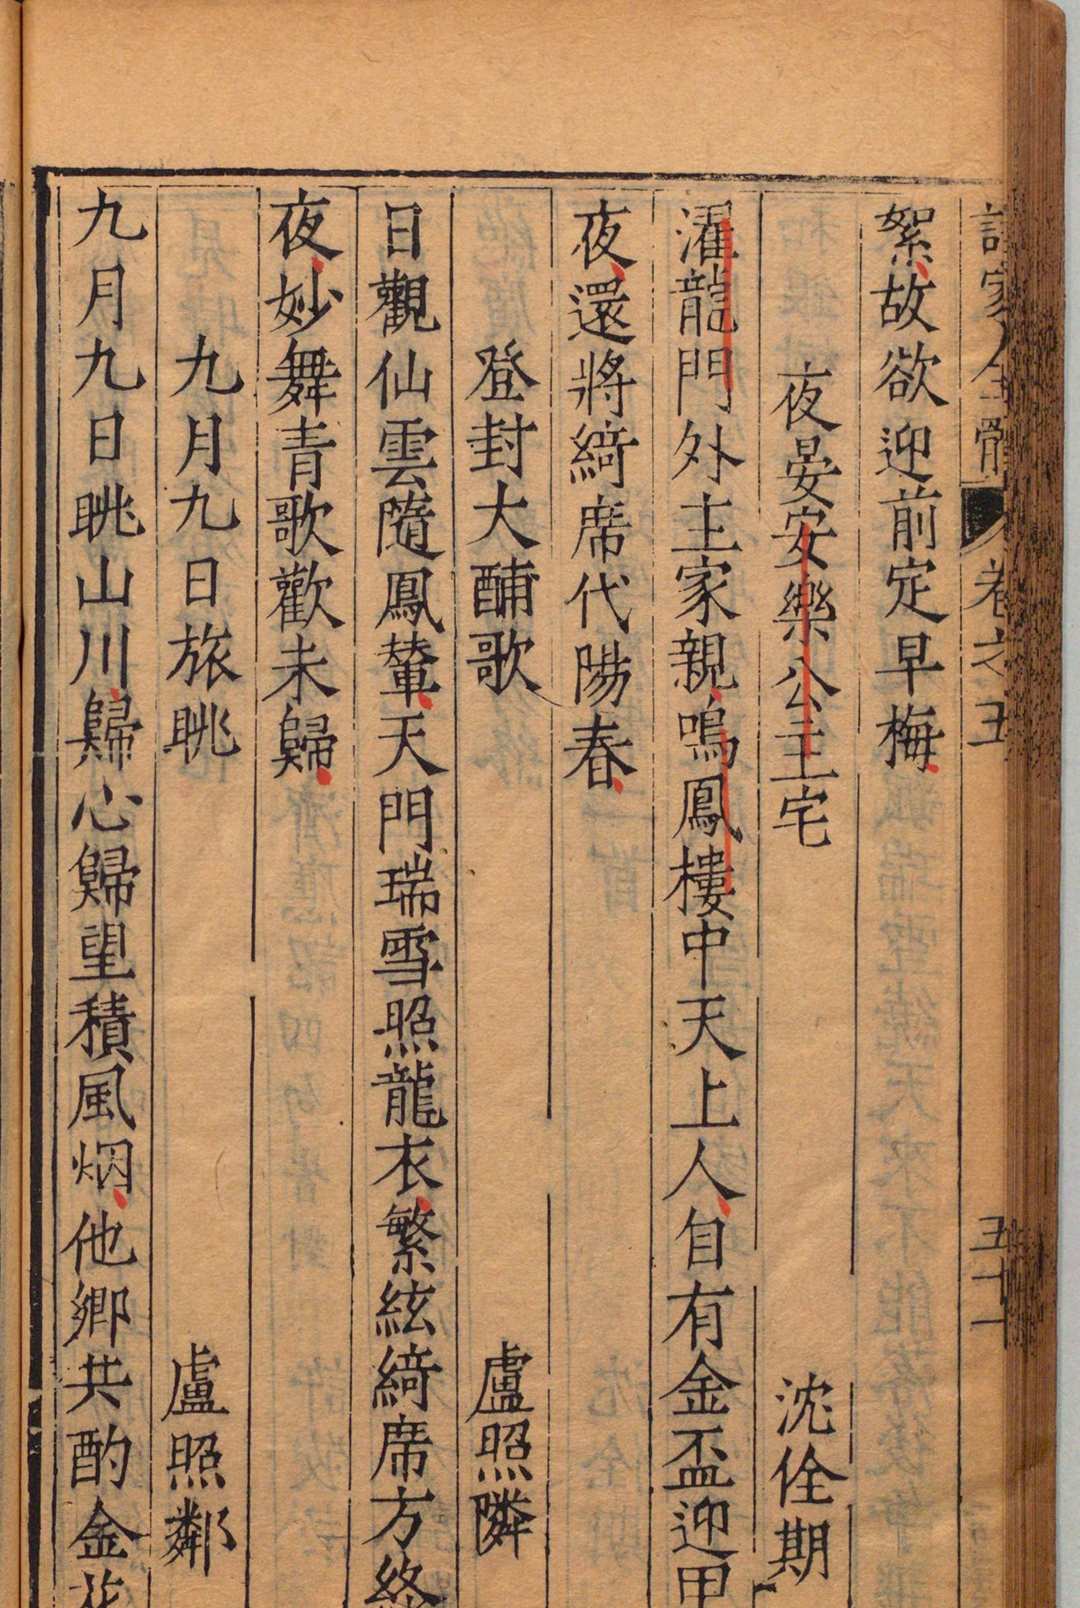 詩家全體 卷之五 五十一
絮故欲迎前定早梅
夜晏安樂公主宅 沈佺期
濯龍門外主家親鳴鳳樓中天上人自有金盃迎甲
夜還將綺席代陽春
登封大酺歌 盧照隣
日觀仙雲隨鳳輦天門瑞雪照龍衣繁絃綺席方終
夜妙舞青歌歡未歸
九月九日旅眺 盧照鄰
九月九日眺山川歸心歸望積風烟他鄉共酌金花